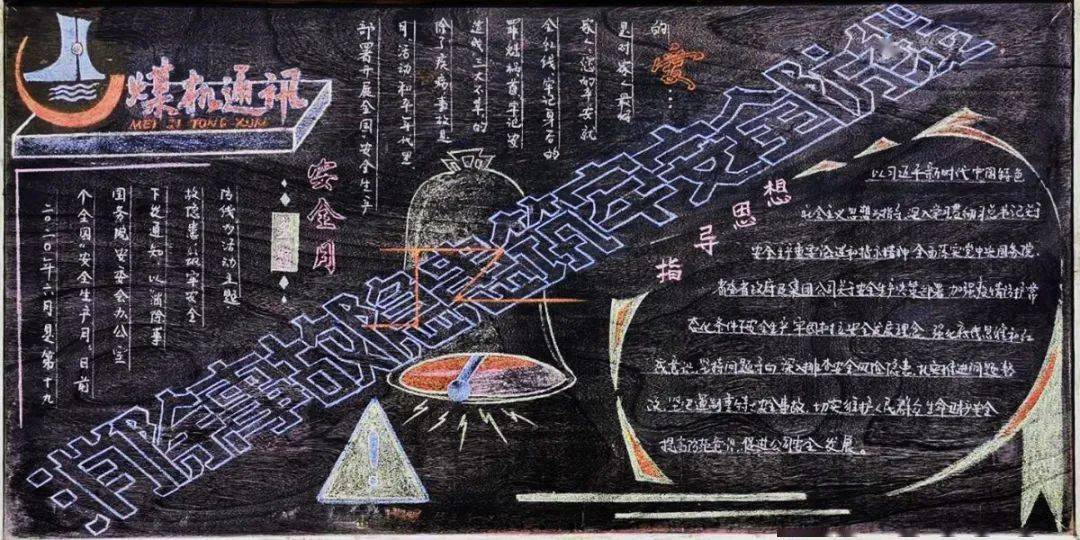 煤机通讯
MEI JI TONG XUN
消除事故隐患筑牢安全防线
安全月
二〇二〇年六月是第十九
个全国“安全生产月”,日前
国务院安委会办公室
下发通知,以消除事
故隐患,筑牢安全
防线为活动主题
部署开展全国安全生产
月活动和平年代里
除了疾病事故是
造成三大不幸的
罪魁祸首牢记安
全红线牢记身后的
家人您的平安就
是对家人最
的爱…
指导思想
以习近平新时代中国特色
社会主义思想为指导,深入学习贯彻习总书记关于
安全生产重要论述和指示精神,全面落实党中央国务院、
省委省政府及集团公司关于安全生产决策部署,加强疫情防护常
态化条件下安全生产,牢固树立安全发展理念,强化底线思维和红
线意识,坚持问题导向,深入排查安全风险隐患,扎实推进问题整
改,坚决遏制重特大安全事故,切实维护人民群众生命健康安全
提高防范意识,促进公司安全发展。